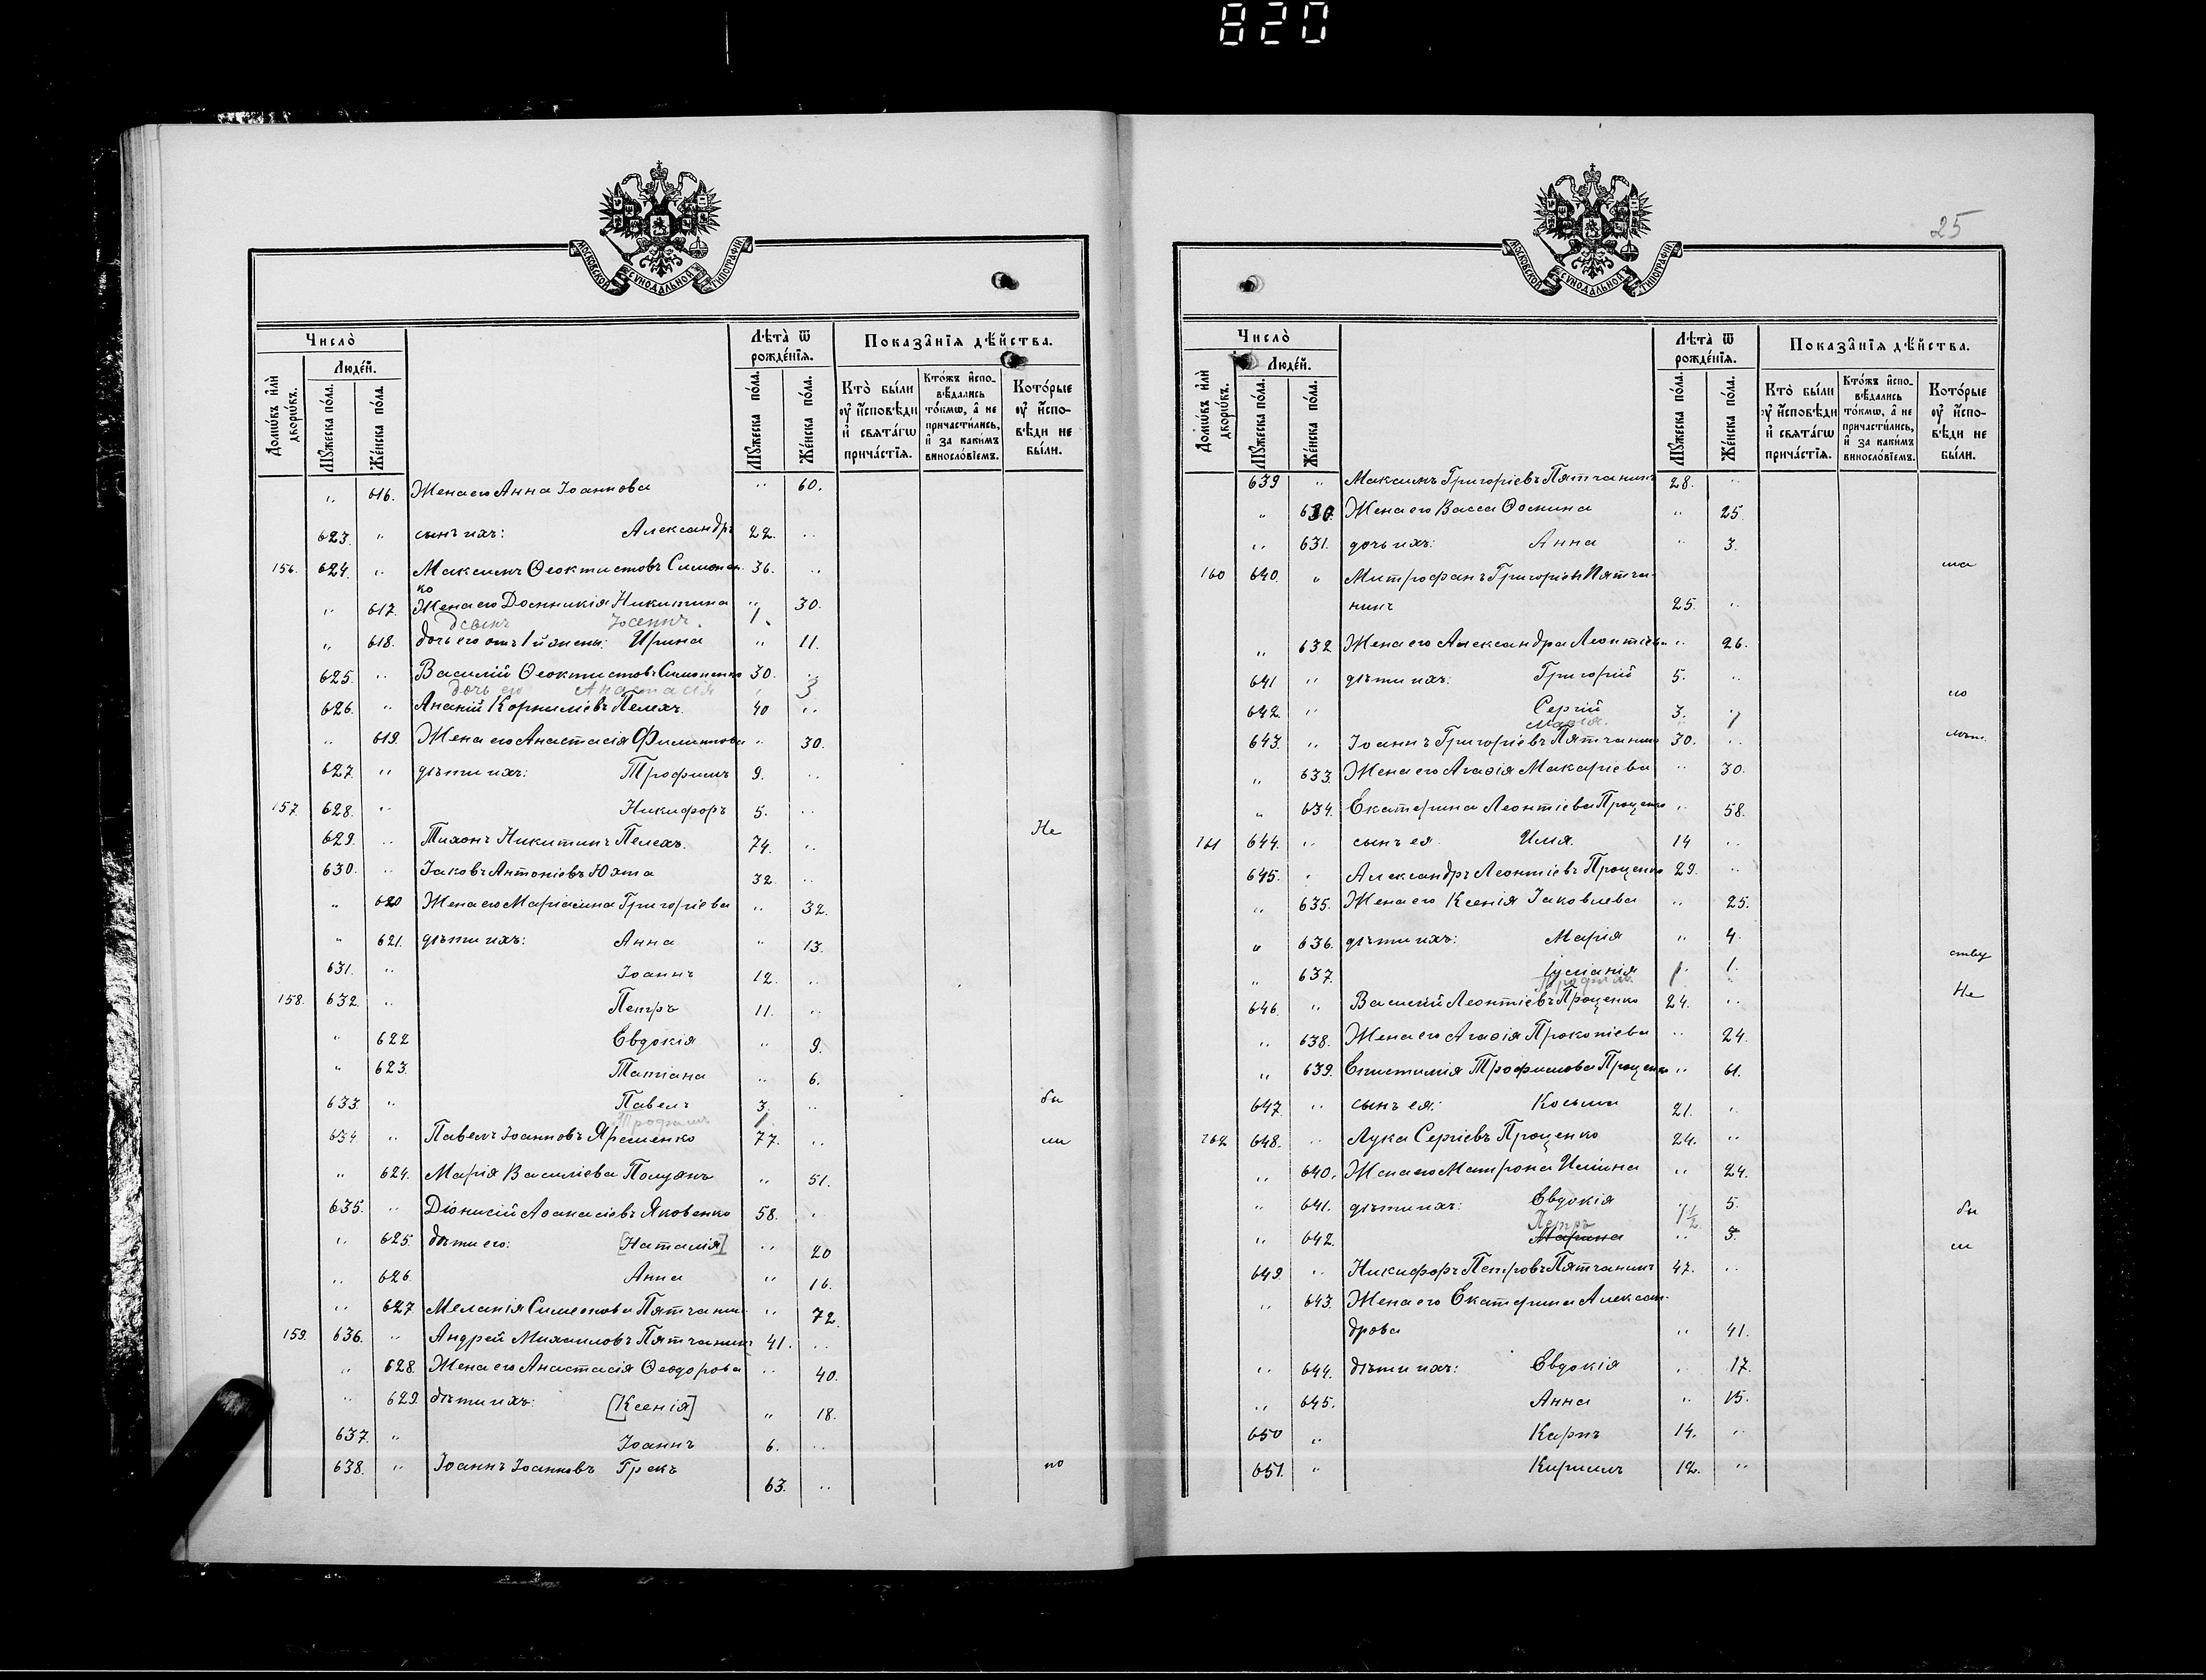 820
МОСКОВСКОЙ СУНОДАЛЬНОЙ ТИПОГРАФІИ
Число̀
Люде́й.
Домѡ́въ и҆лѝ дворѡ́въ.
Мꙋ́жеска по́ла.
Же́нска по́ла.
Лѣ́та ѿ рожде́нїѧ.
Мꙋ́жеска по́ла.
Же́нска по́ла.
Показа̑нїѧ дѣ́йства.
Кто̀ бы́ли оу҆ и҆сповѣ́ди и҆ свѧта́гѡ прича́стїѧ.
Кто́жъ и҆спо-вѣ́дались то́кмѡ, а҆ не причасти́лись, и҆ за каки́мъ винословїемъ.
Кото́рые оу҆ и҆спо-вѣ́ди не бы́ли.
„ 616. Жена его Анна Іоаннова „ 60.
623. „ сынъ ихъ: Александръ 22. „
156. 624. „ Максимъ Ѳеоктистовъ Симонен- 36. „
ко
„ 617. Жена его Домникія Никитина „ 30.
сынъ 1.
„ 618. дочь его отъ 1й жены: Ирина „ 11.
625. „ Василій Ѳеоктистовъ Симоненко 30. „
дочь его Анастасія „ 3
626. „ Ананій Корниліевъ Пелехъ. 40 „
„ 619. Жена его Анастасія Филиппова „ 30.
627. „ дѣти ихъ: Трофимъ 9. „
157. 628. „ Никифоръ 5. „
629. „ Тихонъ Никитинъ Пелехъ. 74. „ Не
630. „ Іаковъ Антоніевъ Юхта 32. „
„ 620 Жена его Маріамна Григоріева „ 32.
„ 621. дѣти ихъ: Анна „ 13.
631. „ Іоаннъ 12. „
158. 632. „ Петръ 11. „
„ 622 Евдокія „ 9.
„ 623. Татіана „ 6.
633. „ Павелъ 3. „ бы
Трофимъ 1.
634 „ Павелъ Іоанновъ Яременко 77. „ ли
„ 624. Марія Василіева Полуянъ „ 51.
635. „ Діонисій Аѳанасіевъ Яковенко 58. „
„ 625. дѣти его: [Наталія] „ 20
„ 626. Анна „ 16.
„ 627 Меланія Симеонова Пятчанин. „ 72.
159. 636. „ Андрей Михаиловъ Пятчанинъ 41. „
„ 628. Жена его Анастасія Ѳеодорова „ 40.
„ 629. дѣти ихъ: [Ксенія] „ 18.
637. „ Іоаннъ 6. „
638. „ Іоаннъ Іоанновъ Грекъ 63. „ по
25
МОСКОВСКОЙ СУНОДАЛЬНОЙ ТИПОГРАФІИ
Число̀
Люде́й.
Домѡ́въ и҆лѝ дворѡ́въ.
Мꙋ́жеска по́ла.
Же́нска по́ла.
Лѣ́та ѿ рожде́нїѧ.
Мꙋ́жеска по́ла.
Же́нска по́ла.
Показа̑нїѧ дѣ́йства.
Кто̀ бы́ли оу҆ и҆сповѣ́ди и҆ свѧта́гѡ прича́стїѧ.
Кто́жъ и҆спо-вѣ́дались то́кмѡ, а҆ не причасти́лись, и҆ за каки́мъ винословїемъ.
Кото́рые оу҆ и҆спо-вѣ́ди не бы́ли.
639 „ Максимъ Григоріевъ Пятчанинъ 28. „
„ 630. Жена его Васса Ѳомина „ 25.
„ 631. дочь ихъ: Анна „ 3.
160 640. „ Митрофанъ Григоріевъ Пятча- ма
нинъ 25. „
„ 632 Жена его Александра Леонтіева „ 26.
641 „ дѣти ихъ: Григорій 5. „
642. „ Сергій 3. „ ло
Марія. 1
643. „ Іоаннъ Григоріевъ Пятчанинъ 30. „ лѣт.
„ 633. Жена его Агаѳія Макаріева „ 30.
„ 634. Екатерина Леонтіева Проценко „ 58.
161 644. „ сынъ ея Илія. 14 „
645. „ Александръ Леонтіевъ Проценко 29. „
„ 635. Жена его Ксенія Іаковлева „ 25.
„ 636. дѣти ихъ: Марія „ 4.
„ 637. Іуліанія „ 1. ству
646. „ Василій Леонтіевъ Проценко 24. „ Не
„ 638. Жена его Агаѳія Прокопіева „ 24.
„ 639. Епистимія Трофимова Проценко „ 61.
647. „ сынъ ея: Косьма 21. „
162 648. „ Лука Сергіевъ Проценко 24. „
„ 640. Жена его Матрона Иліина „ 24.
„ 641. дѣти ихъ: Евдокія „ 5. бы
Петръ 1½
„ 642. Марина „ 3. ли
649. „ Никифоръ Петровъ Пятчанинъ 47. „
„ 643. Жена его Екатерина Алексан-
дрова „ 41.
„ 644. дѣти ихъ: Евдокія „ 17.
„ 645. Анна „ 15.
650 „ Карпъ 14. „
651. „ Кириллъ 12. „